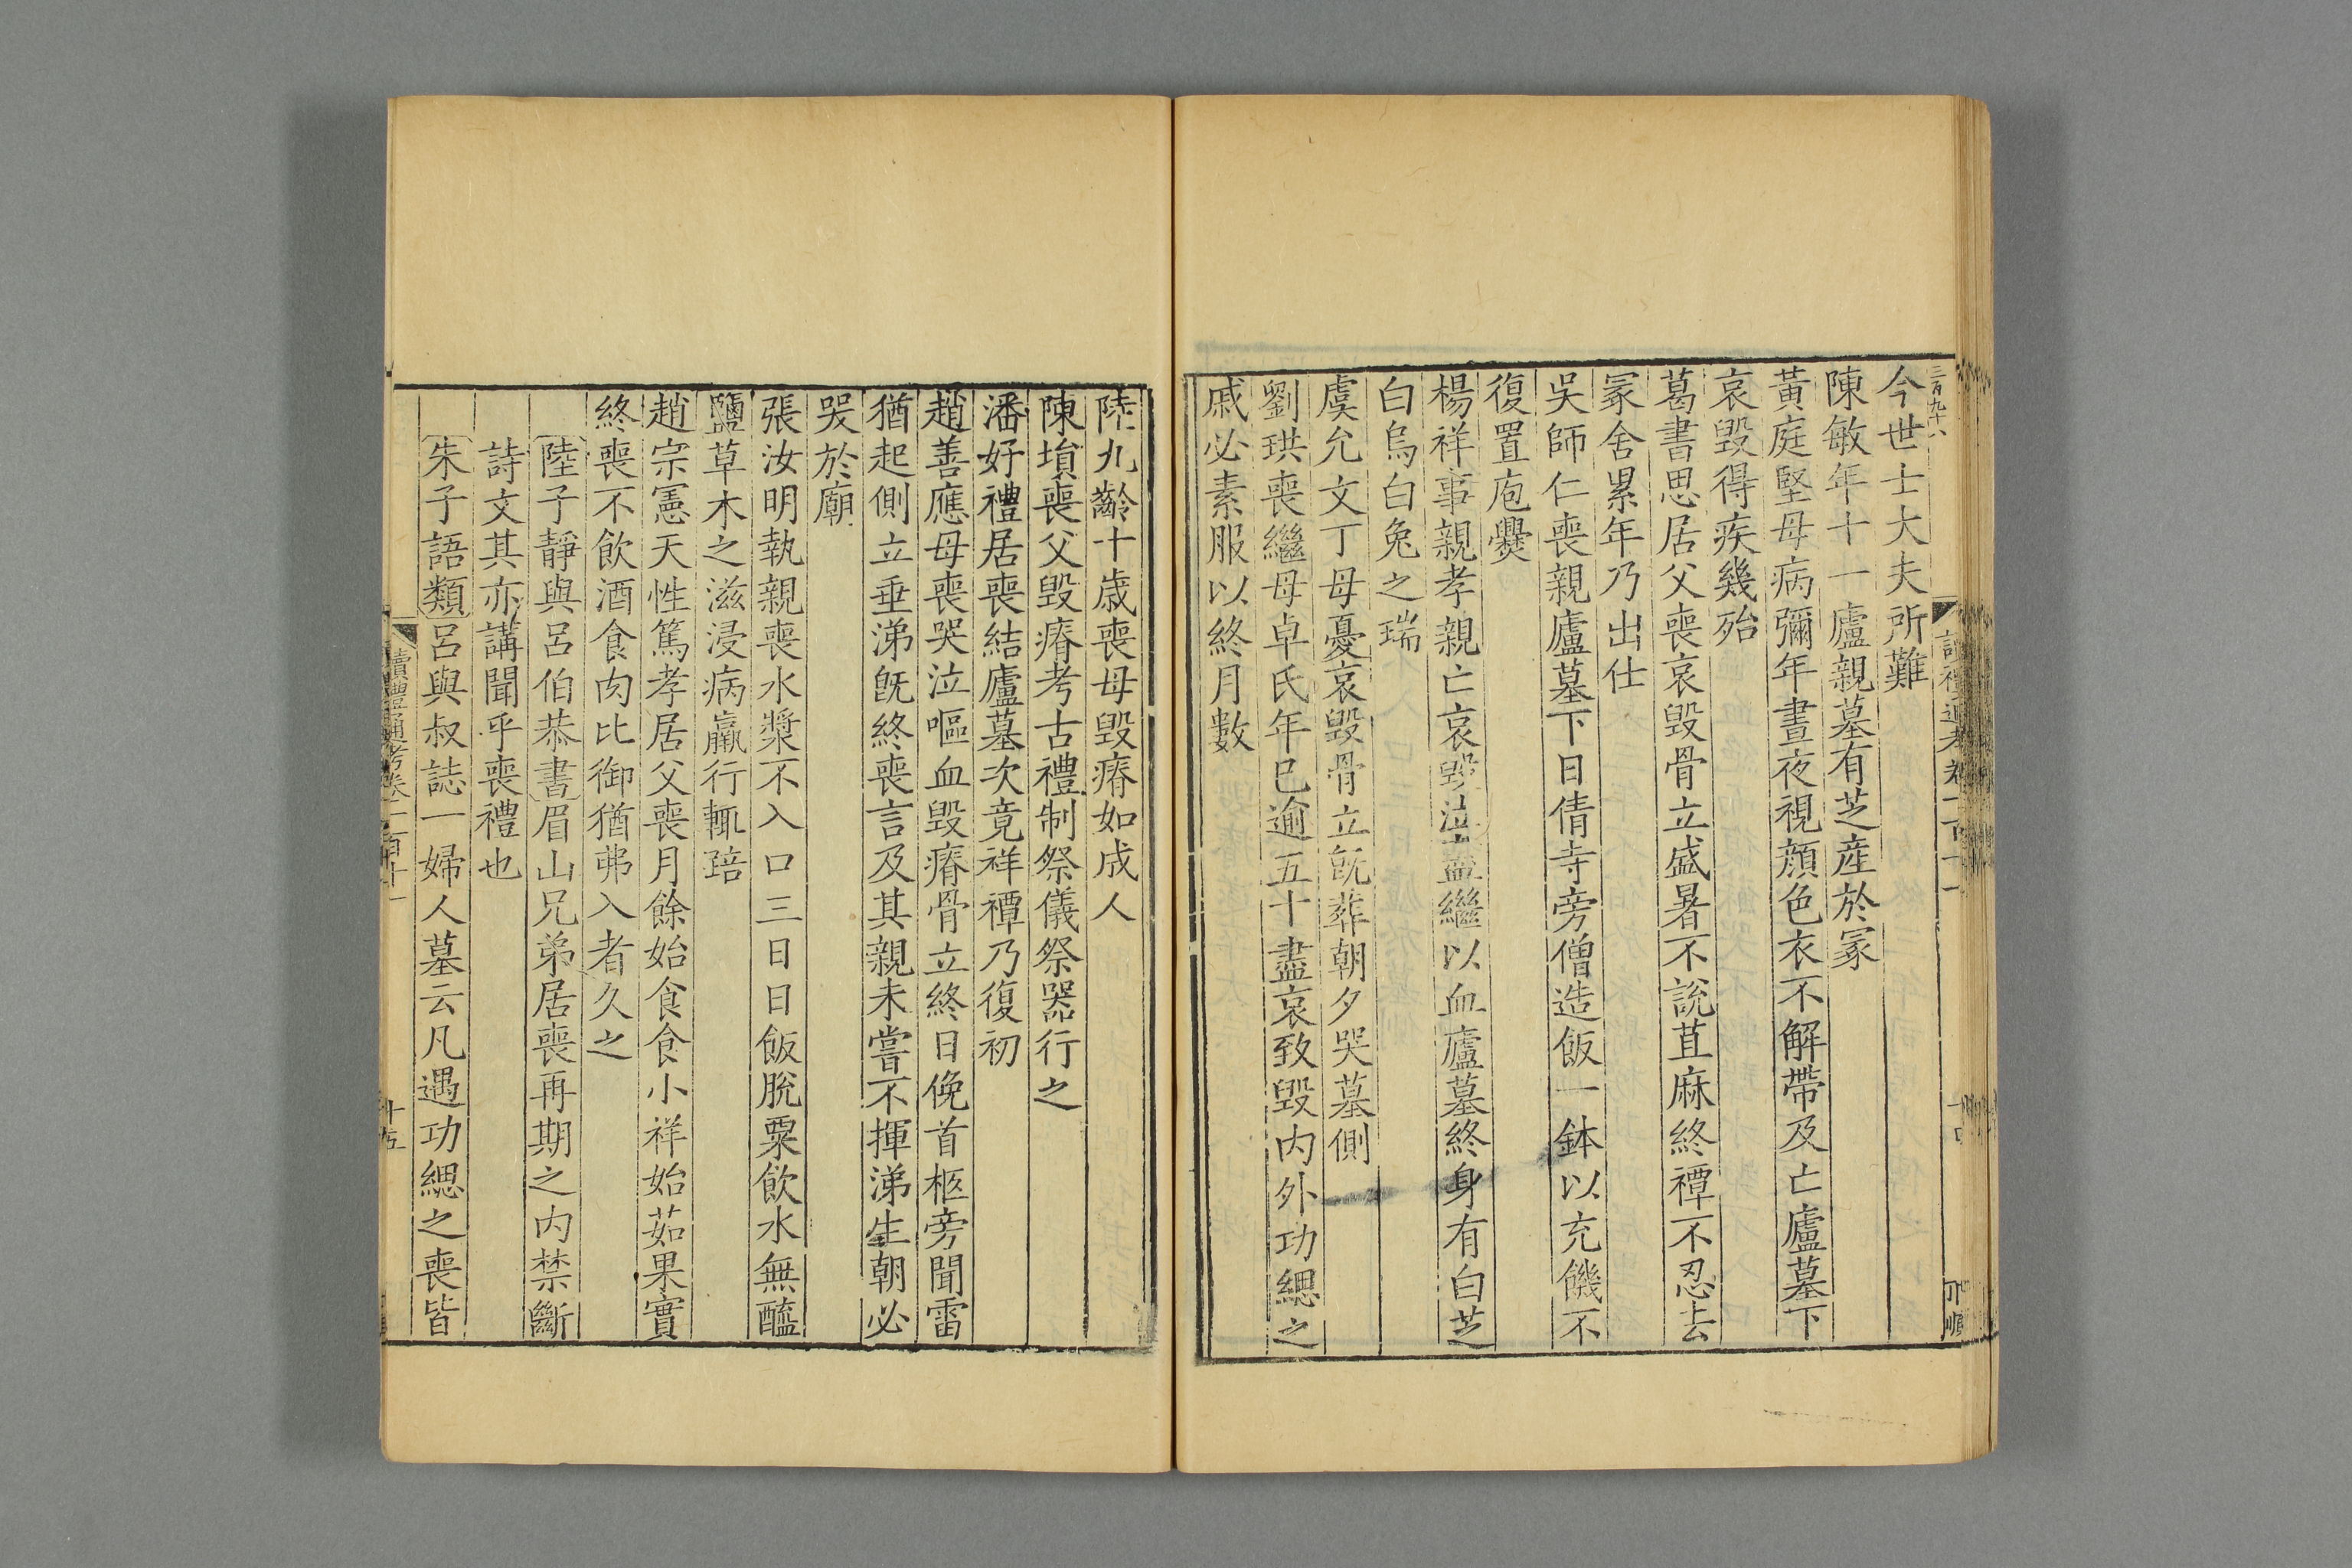 三百九十八
今世士大夫所難
陳敏年十一廬親墓有芝産於冢
黃庭堅母病彌年晝夜視顔色衣不解帶及亡廬墓下
哀毀得疾幾殆
葛書思居父喪哀毀骨立盛暑不說苴麻終禫不忍去
冢舍累年乃出仕
吳師仁喪親廬墓下日倩寺旁僧造飯一鉢以充饑不
復置庖爨
楊祥事親孝親亡哀毀泣盡繼以血廬墓終身有白芝
白烏白兔之瑞
虞允文丁母憂哀毀骨立旣葬朝夕哭墓側
劉珙喪繼母卓氏年已逾五十盡哀致毀内外功緦之
戚必素服以終月數
陸九齡十歲喪母毀瘠如成人
陳塤喪父毀瘠考古禮制祭儀祭器行之
潘好禮居喪結廬墓次竟祥禫乃復初
趙善應母喪哭泣嘔血毀瘠骨立終日俛首柩旁聞雷
猶起側立垂涕旣終喪言及其親未嘗不揮涕生朝必
哭於廟
張汝明執親喪水漿不入口三日日飯脫粟飲水無醯
鹽草木之滋浸病羸行輒踣
趙宗憲天性篤孝居父喪月餘始食食小祥始茹果實
終喪不飲酒食肉比御猶弗入者久之
陸子靜與呂伯恭書眉山兄弟居喪再期之内禁斷
詩文其亦講聞乎喪禮也
朱子語類呂與叔誌一婦人墓云凡遇功緦之喪皆
讀禮通考卷一百十一
十五